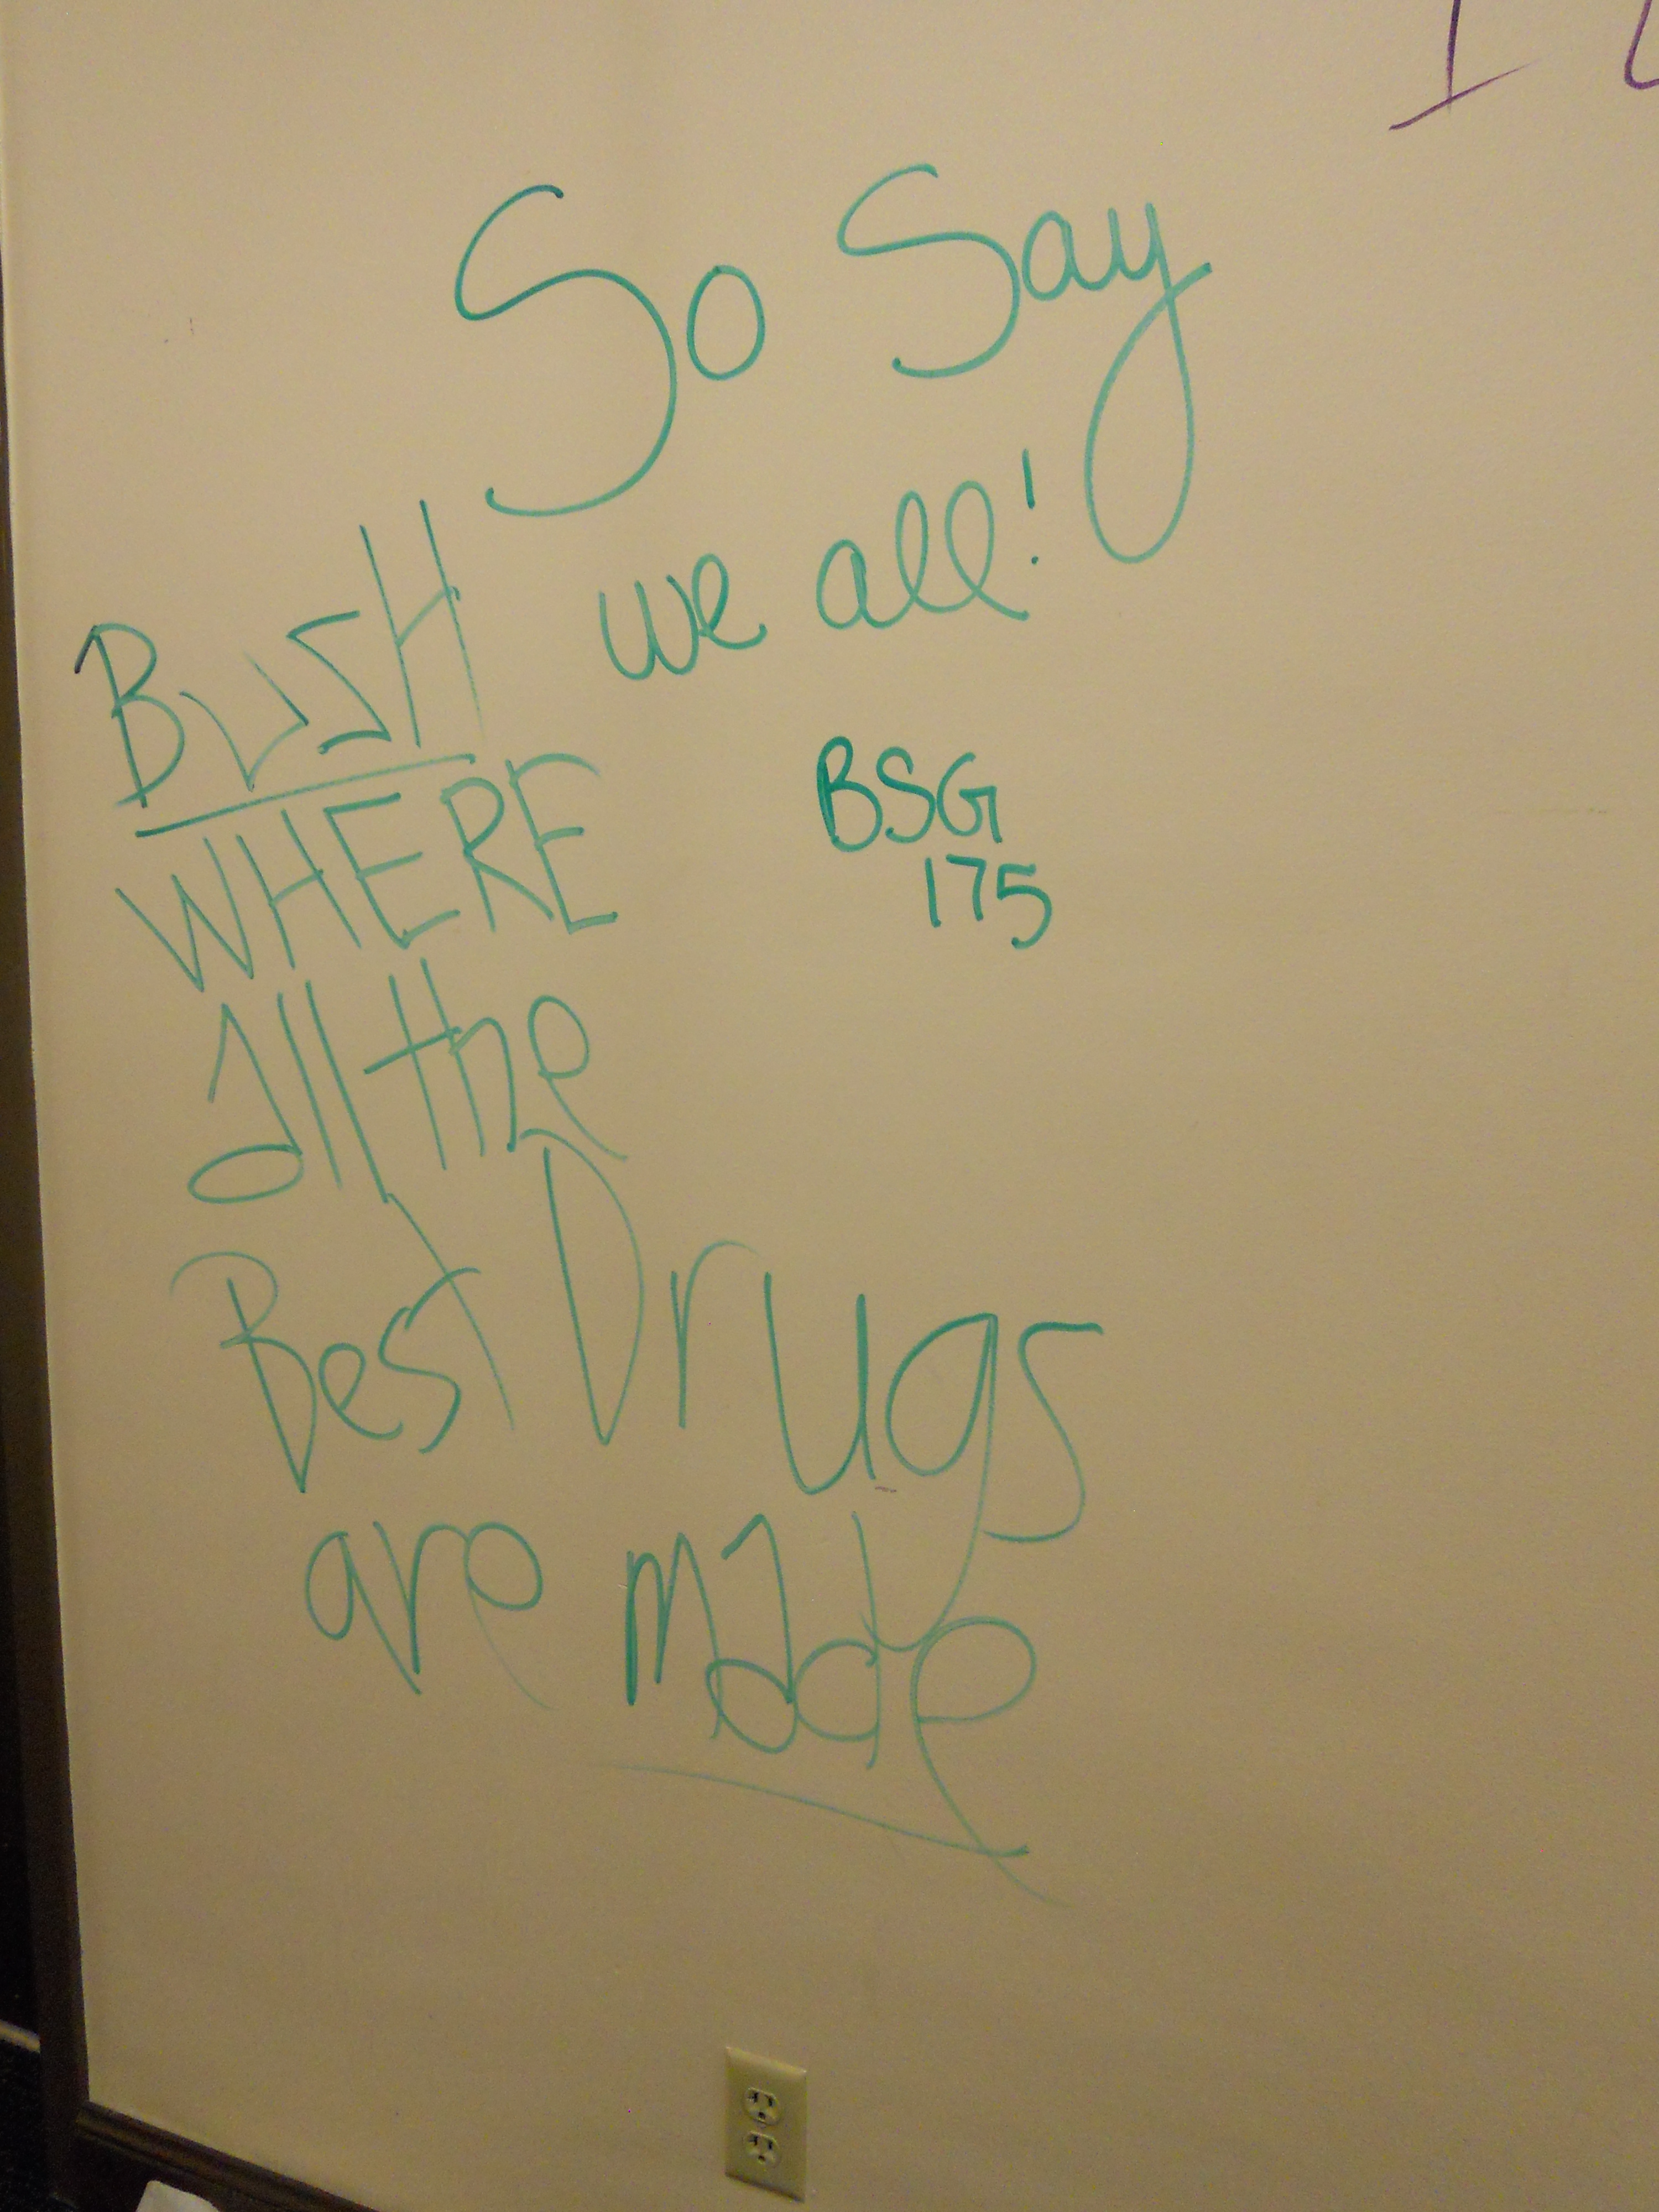 So Say
we all!
BSG
175
BusH
WHERE
all the
Best Drugs
are made
I